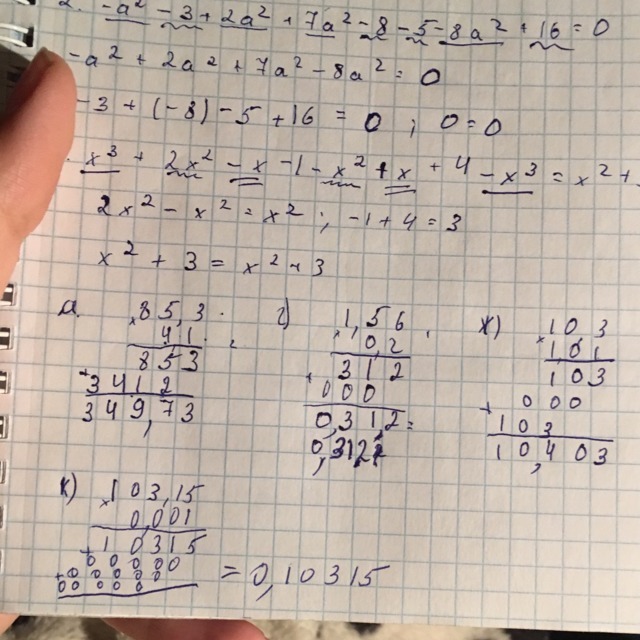 2. -a² - 3 + 2a² + 7a² - 8 - 5 - 8a² + 16 = 0
-a² + 2a² + 7a² - 8a² = 0
-3 + (-8) - 5 + 16 = 0 ; 0 = 0
x³ + 2x² - x - 1 - x² + x + 4 - x³ = x² +
2x² - x² = x² ; -1 + 4 = 3
x² + 3 = x² + 3
а.
×85,3
4,1
853
+3412
349,73
г)
×1,56
0,2
312
+000
0,312=
0,312
ж)
×103
101
103
+000
103
10,403
к)
×103,15
0,001
+10315
00000
+00000
00000
= 0,10315